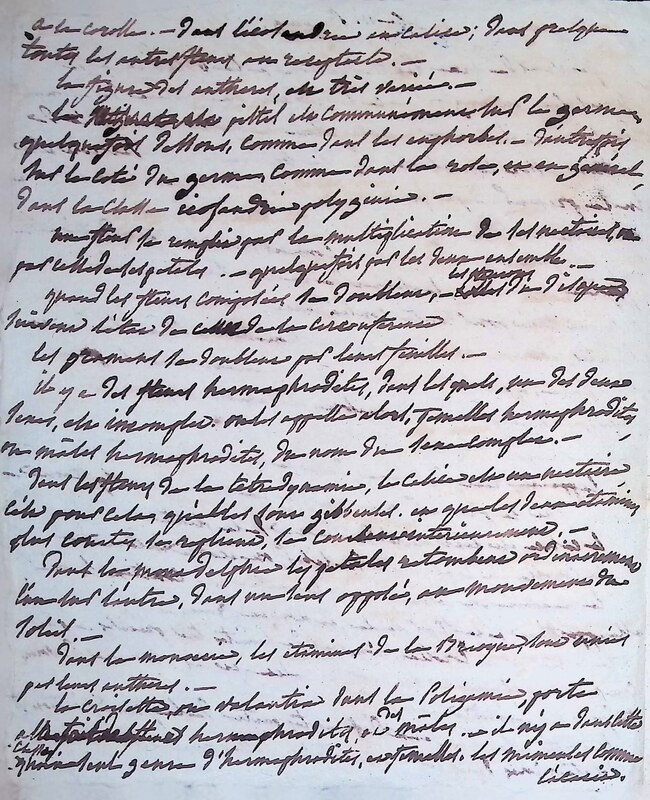 a la corolle. - dans l'icosandrie au calise; dans presque
toutes les autres fleurs au receptacle. -
la figure des antheres, est très variée. -
le pistil est communément sur le germe,
quelquefois dessous, comme dans les euphorbes. - d'autres fois
sur le coté du germe, comme dans la rose, et en général,
dans la classe icosandrie polyginie. -
une fleur se remplit par la multiplication de ses nectaires, ou
par celle de ses petales. - quelquefois par les deux ensemble. -
quand les fleurs composées se doublent, - les fleurons du disque
l'état de celle de la circonference
les se doublent par leurs feuilles. -
il y a des fleurs hermaphrodites, dans lesquels, un des deux
sexes, est incomplet. on les appelle alors, femelles hermaphrodites,
ou mâles hermaphrodites, du nom du sexe complet. -
dans les fleurs de la tetradynamie, le calice est un nectaire
c'est pour cela, qu'elles sont gibbeuses. et que les deux etamines
plus courtes, se replient, se courbent intérieurement. -
dans la monadelphie les petales retombent ordinairement
l'un sur l'autre, dans un sens opposé, au mouvement du
soleil. -
dans la monoecie, les etamines de la sont unies
par leurs antheres. -
la croisette, ou valantia dans la Poligamie, porte
hermaphrodites, et des mâles. - il n'y a dans cette
classe genre d'hermaphrodites, et femelles. les mimeuses comme
l'acacia.